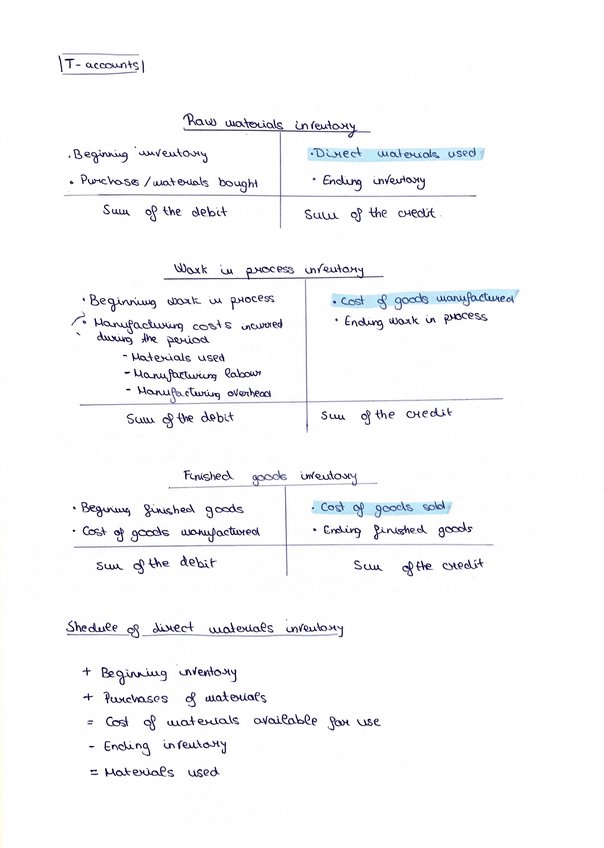 T-accounts
Raw materials inventory
• Beginning inventory
• Direct materials used
• Purchases / materials bought
• Ending inventory
Sum of the debit
Sum of the credit.
Work in process inventory
• Beginning work in process
• Cost of goods manufactured
• Manufacturing costs incurred
• Ending work in process
during the period
- Materials used
- Manufacturing labour
- Manufacturing overhead
Sum of the debit
Sum of the credit
Finished goods inventory
• Begining finished goods
• Cost of goods sold
• Cost of goods manufactured
• Ending finished goods
Sum of the debit
Sum of the credit
Shedule of direct materials inventory
+ Beginning inventory
+ Purchases of materials
= Cost of materials available for use
- Ending inventory
= Materials used